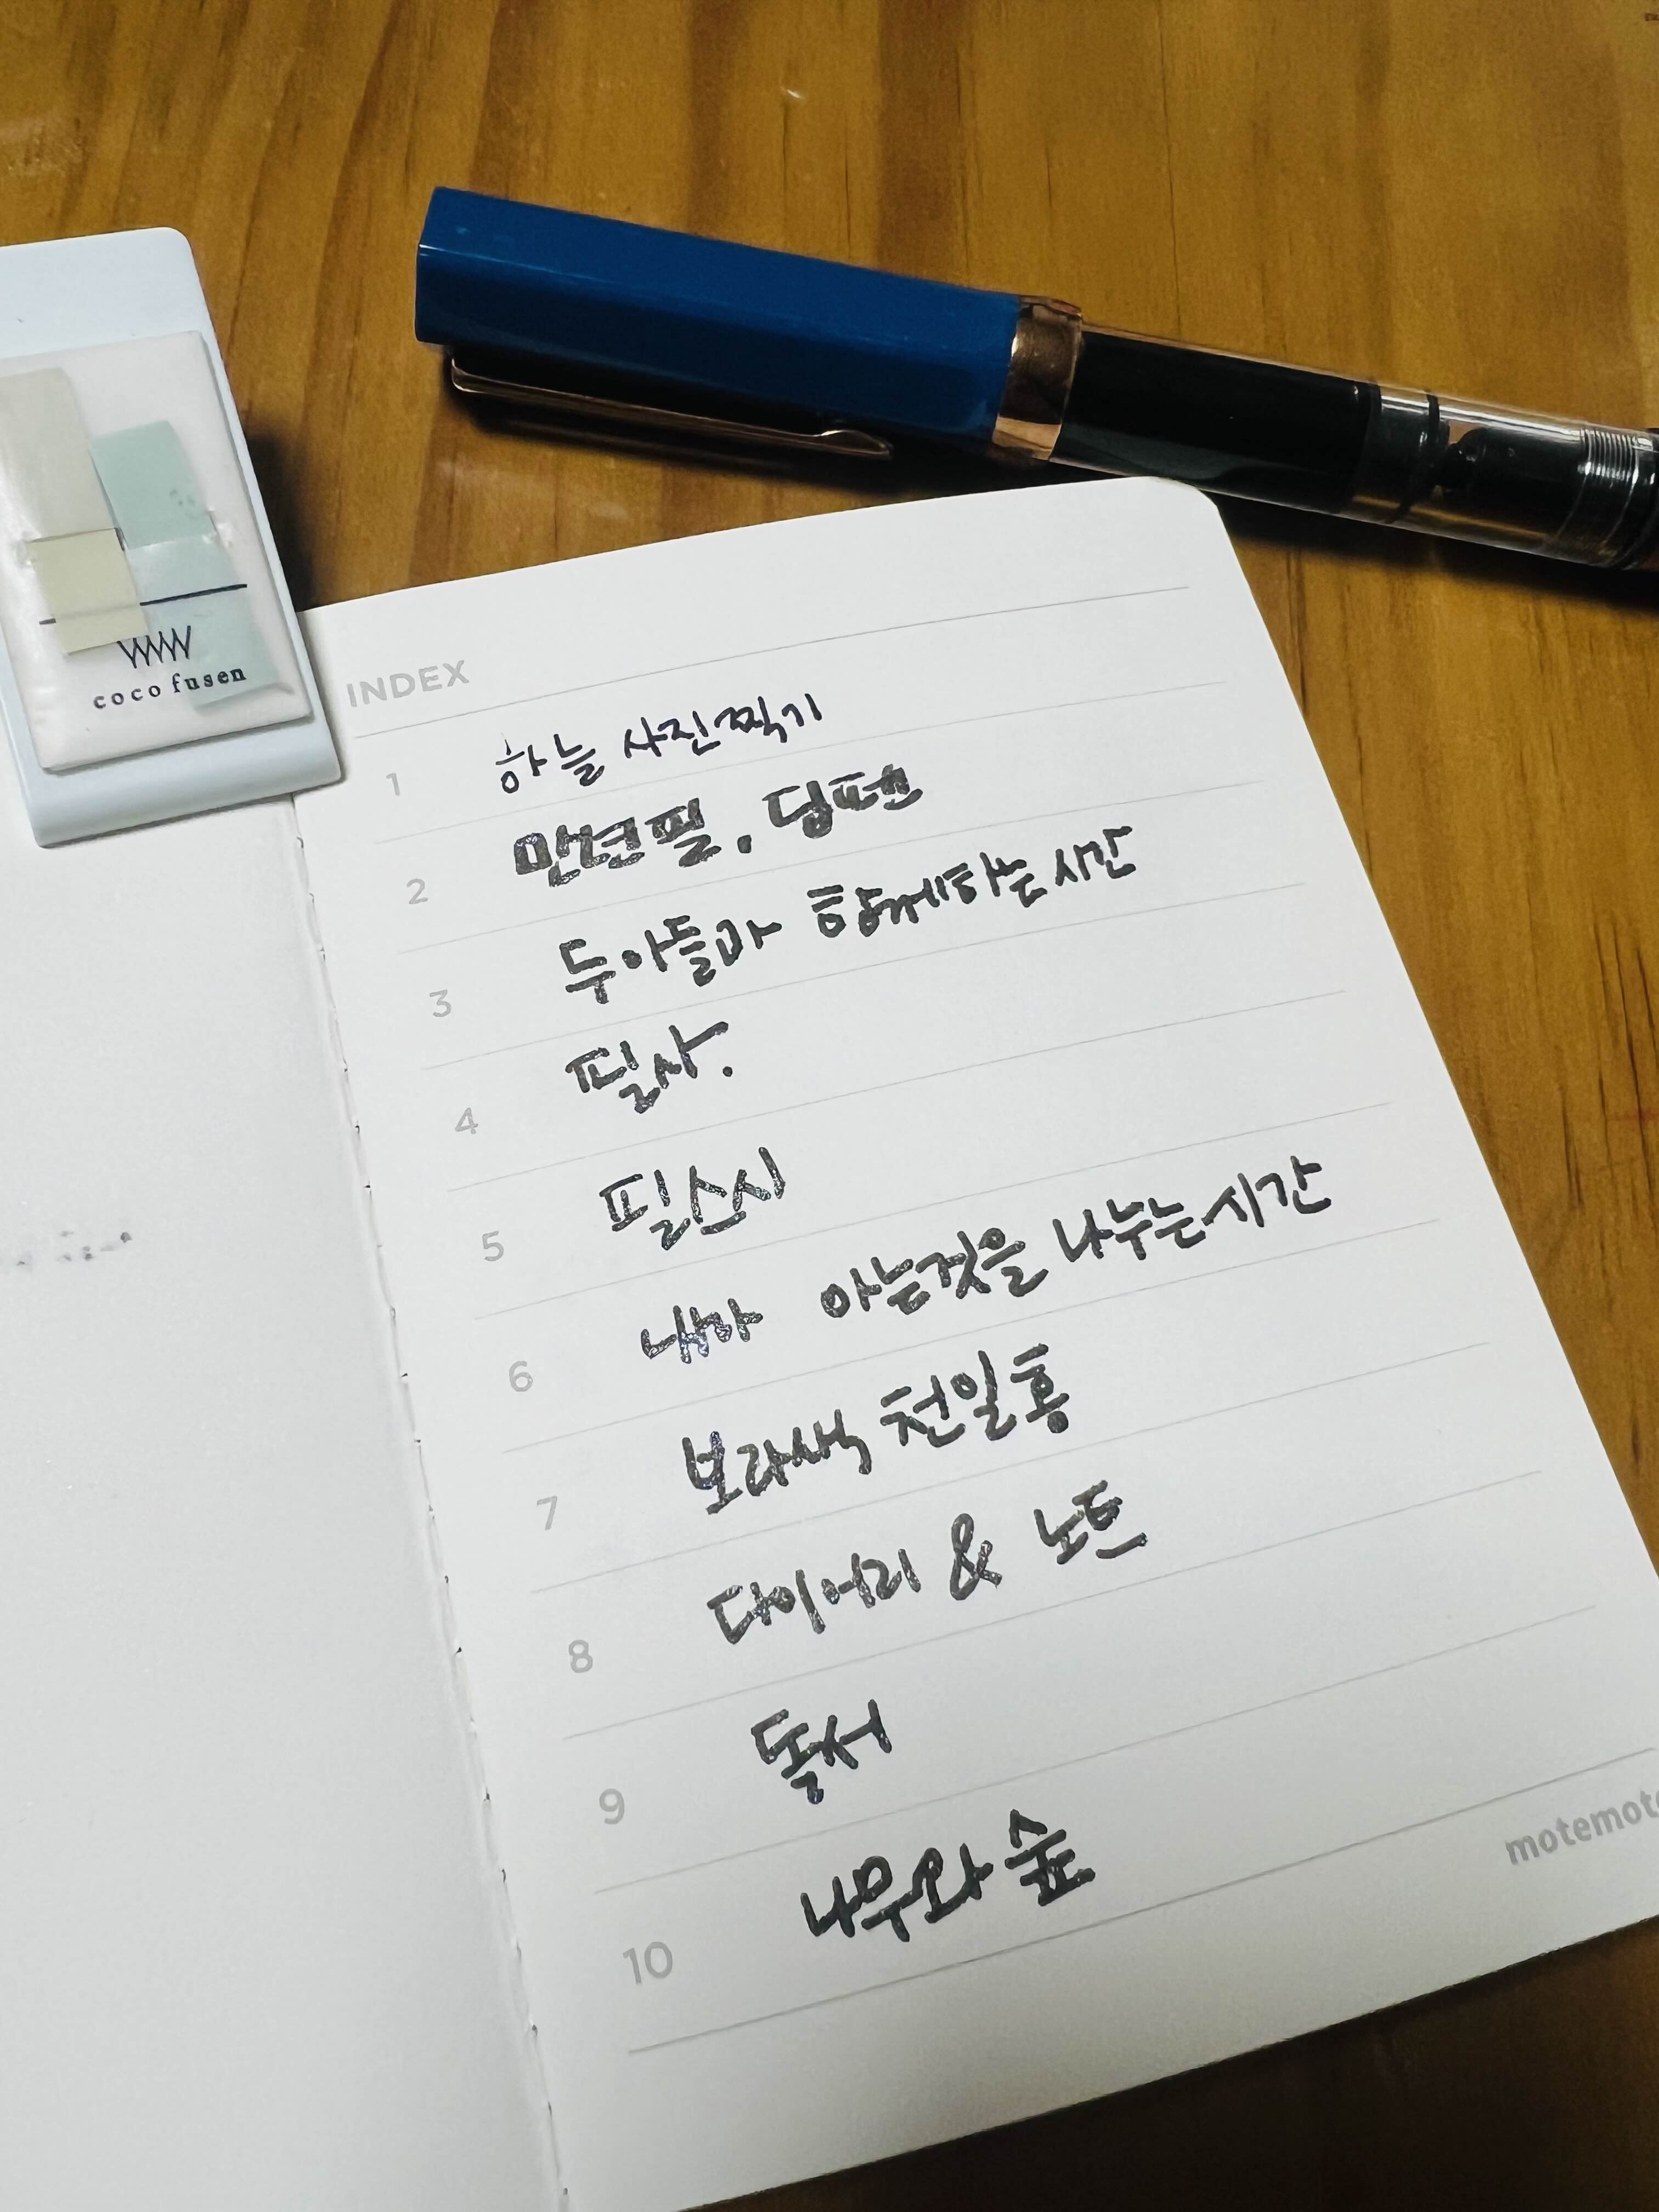 coco fusen
INDEX
1 하늘 사진찍기
2 만년필, 딥펜
3 두아들과 함께하는 시간
4 필사.
5 필스시
6 내가 아는것을 나누는 시간
7 보라색 천일홍
8 다이어리 & 노트
9 독서
10 나무와 숲
motemote